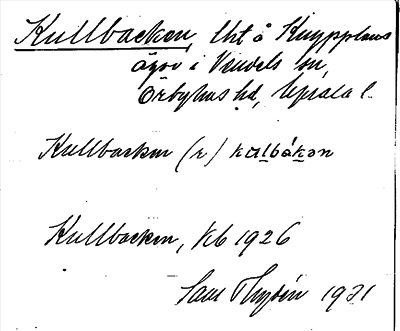 Kullbacken, lht å Knypplans
ägor i Vendels sn,
Örbyhus hd, Upsala l.
Kullbacken (r) kulbákən
Kullbacken, Kb 1926
1931